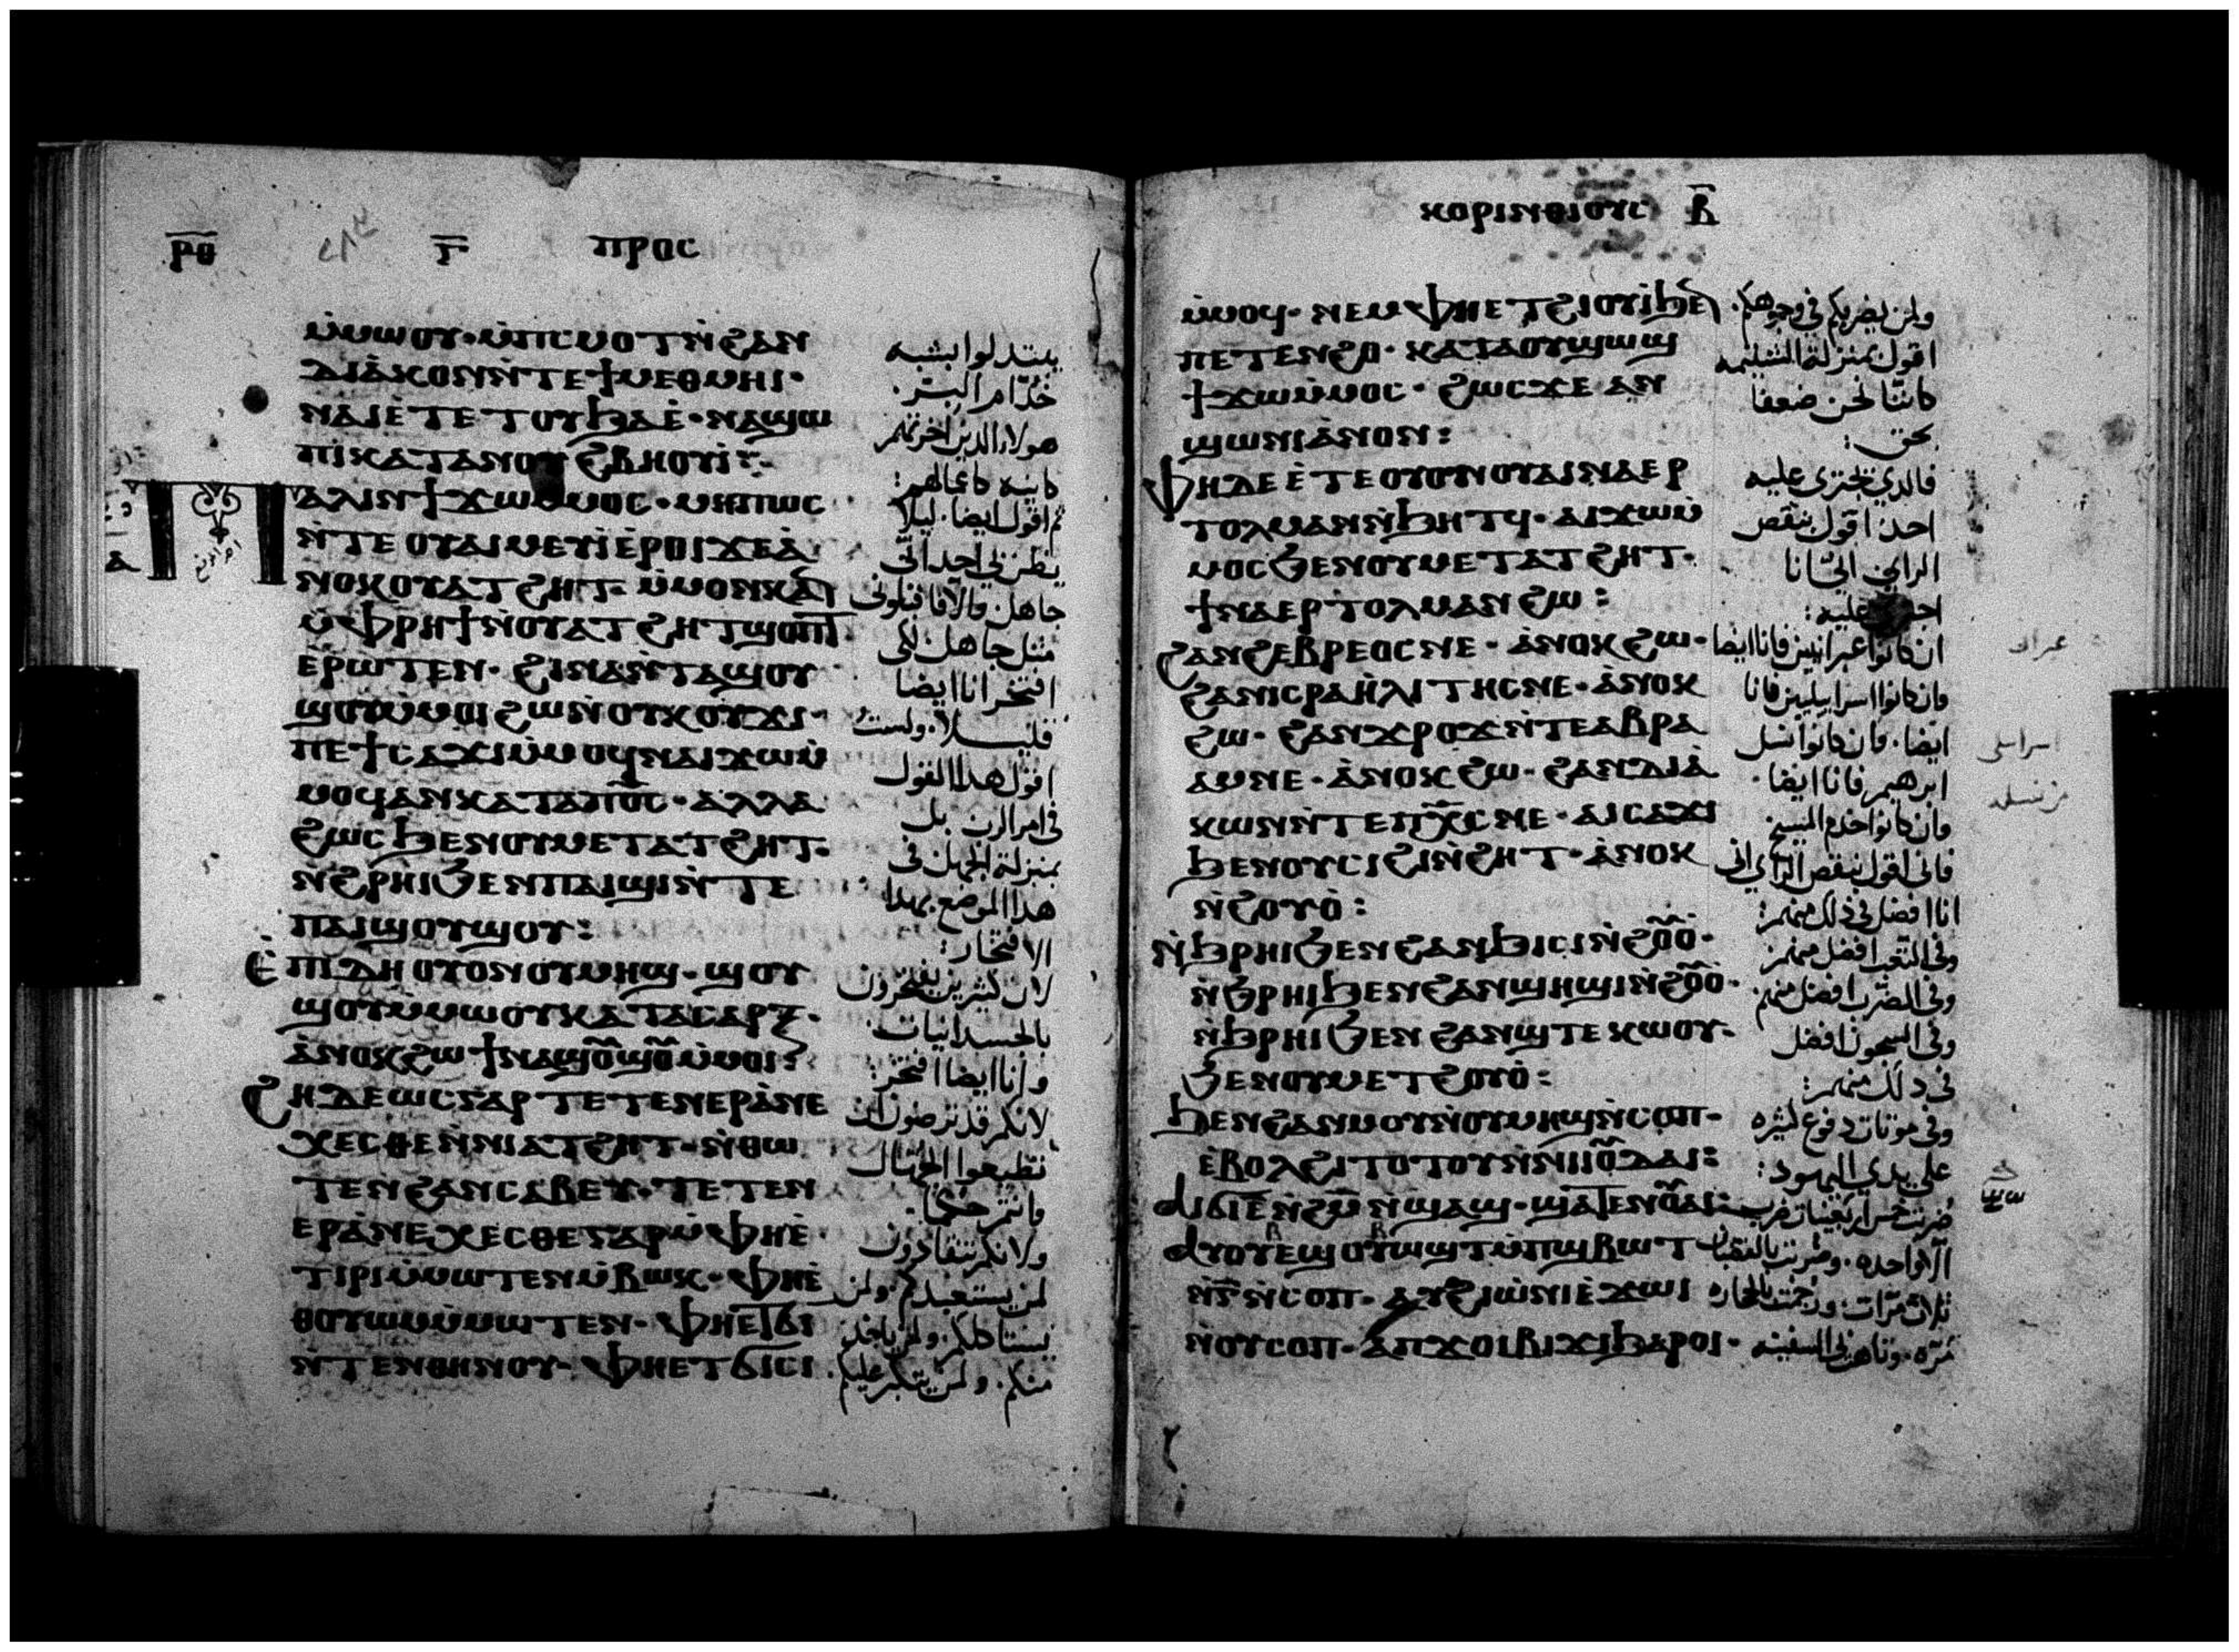 ⲣ︦ⲑ︦ ⲅ︦ ⲡⲣⲟⲥ
ⲙ̀ⲙⲱⲟⲩ· ⲙ̀ⲡⲥⲙⲟⲧ ⲛ̀ϩⲁⲛ
ⲇⲓⲁ̀ⲕⲟⲛ ⲛ̀ⲧⲉ ϯⲙⲉⲑⲙⲏⲓ·
ⲛⲁⲓ ⲉ̀ⲧⲉ ⲧⲟⲩϧⲁⲉ̀· ⲛⲁϣⲱ
ⲡⲓ ⲕⲁⲧⲁ ⲛⲟⲩ ϩⲃⲏⲟⲩⲓ̀:
ⲡⲁⲗⲓⲛ ϯϫⲱ ⲙ̀ⲙⲟⲥ· ⲙⲏⲡⲱⲥ
ⲛ̀ⲧⲉ ⲟⲩⲁⲓ ⲙⲉⲩⲓ̀ ⲉ̀ⲣⲟⲓ ϫⲉ ⲁ̀
ⲛⲟⲕ ⲟⲩⲁⲧϩⲏⲧ· ⲙ̀ⲙⲟⲛ ⲕⲁⲛ
ⲙ̀ⲫⲣⲏϯ ⲛ̀ⲟⲩⲁⲧϩⲏⲧ ϣⲟⲡⲧ
ⲉ̀ⲣⲱⲧⲉⲛ· ϩⲓⲛⲁ ⲛ̀ⲧⲁϣⲟⲩ
ϣⲟⲩ ⲙ̀ⲙⲟⲓ ϩⲱ ⲛ̀ⲟⲩⲕⲟⲩϫⲓ·
ⲡⲉϯⲥⲁϫⲓ ⲙ̀ⲙⲟϥ ⲛⲁⲓϫⲱ ⲙ̀
ⲙⲟϥ ⲁⲛ ⲕⲁⲧⲁ ⲡⲟ︦ⲥ︦· ⲁⲗⲗⲁ
ϩⲱⲥ ϧⲉⲛ ⲟⲩⲙⲉⲧⲁⲧϩⲏⲧ·
ⲛ̀ϩⲣⲏⲓ ϧⲉⲛ ⲡⲁⲓϣⲓ ⲛ̀ⲧⲉ
ⲡⲁⲓϣⲟⲩϣⲟⲩ:
ⲉ̀ⲡⲓⲇⲏ ⲟⲩⲟⲛ ⲟⲩⲙⲏϣ· ϣⲟⲩ
ϣⲟⲩ ⲙ̀ⲙⲱⲟⲩ ⲕⲁⲧⲁ ⲥⲁⲣⲝ·
ⲁ̀ⲛⲟⲕ ϩⲱ ϯⲛⲁϣⲟ︦ϣⲟ︦ ⲙ̀ⲙⲟⲓ:
ϩⲏⲇⲉⲱⲥ ⲅⲁⲣ ⲧⲉⲧⲉⲛⲉⲣⲁ̀ⲛⲉ
ⲭⲉⲥⲑⲉ ⲛ̀ⲛⲓⲁⲧϩⲏⲧ· ⲛ̀ⲑⲱ
ⲧⲉⲛ ϩⲁⲛⲥⲁⲃⲉⲩ· ⲧⲉⲧⲉⲛ
ⲉⲣⲁ̀ⲛⲉⲭⲉⲥⲑⲉ ⲅⲁⲣ ⲙ̀ⲫⲏⲉ̀
ⲧⲓⲣⲓ ⲙ̀ⲙⲱⲧⲉⲛ ⲙ̀ⲃⲱⲕ· ⲫⲏⲉ̀
ⲑⲟⲩⲱⲙ ⲙ̀ⲙⲱⲧⲉⲛ· ⲫⲏⲉⲧϭⲓ
ⲛ̀ⲧⲉⲛ ⲑⲏⲛⲟⲩ· ⲫⲏⲉⲧϭⲓⲥⲓ
يبتدلوا بشبه
خدّام البرّ·
هولاء الدين اخرتهم
كاينه كاعمالهم:
ثم اقول ايضا· ليلا
يظن بي احد اني
جاهل والا فاقبلوني
مثل جاهل لكي
افتخر انا ايضا
قليلا· ولست
اقول هدا القول
في امر الرب بل
بمنزلة الجهل في
هدا الموضع بهدا
الافتخار:
لان كثيرين يفتخرون
بالجسدانيات
وانا ايضا افتخر:
لانكم قد ترضون ان
تطيعوا الجهال
وانتم حكما·
ولانكم تنقادون
لمن يستعبدكم· ولمن
يستاكلكم· ولمن ياخد
منكم· ولمن يتكبر عليكم·
ⲕⲟⲣⲓⲛⲑⲓⲟⲩⲥ ⲃ︦
ⲙ̀ⲙⲟϥ· ⲛⲉⲙ ⲫⲏⲉⲧϩⲓⲟⲩⲓ̀ ϧⲉⲛ
ⲡⲉⲧⲉⲛϩⲟ· ⲕⲁⲧⲁ ⲟⲩϣⲱϣ
ϯϫⲱ ⲙ̀ⲙⲟⲥ· ϩⲱⲥ ϫⲉ ⲁⲛ
ϣⲱⲛⲓ ⲁ̀ⲛⲟⲛ:
ⲫⲏ ⲇⲉ ⲉ̀ⲧⲉ ⲟⲩⲟⲛ ⲟⲩⲁⲓ ⲛⲁⲉⲣ
ⲧⲟⲗⲙⲁⲛ ⲛ̀ϧⲏⲧϥ· ⲁⲓϫⲱ ⲙ̀
ⲙⲟⲥ ϧⲉⲛ ⲟⲩⲙⲉⲧⲁⲧϩⲏⲧ·
ϯⲛⲁⲉⲣⲧⲟⲗⲙⲁⲛ ϩⲱ:
ϩⲁⲛϩⲉⲃⲣⲉⲟⲥ ⲛⲉ· ⲁ̀ⲛⲟⲕ ϩⲱ·
ϩⲁⲛⲓⲥⲣⲁⲏ̀ⲗⲓⲧⲏⲥ ⲛⲉ· ⲁ̀ⲛⲟⲕ
ϩⲱ· ϩⲁⲛϫⲣⲟϫ ⲛ̀ⲧⲉ ⲁⲃⲣⲁ
ⲁⲙ ⲛⲉ· ⲁ̀ⲛⲟⲕ ϩⲱ· ϩⲁⲛⲇⲓⲁ̀
ⲕⲱⲛ ⲛ̀ⲧⲉ ⲡⲭ︦ⲥ︦ ⲛⲉ· ⲁⲓⲥⲁϫⲓ
ϧⲉⲛ ⲟⲩⲥⲓϩⲓ ⲛ̀ϩⲏⲧ· ⲁ̀ⲛⲟⲕ
ⲛ̀ϩⲟⲩⲟ̀:
ⲛ̀ϧⲣⲏⲓ ϧⲉⲛ ϩⲁⲛϧⲓⲥⲓ ⲛ̀ϩⲟ︦ⲟ̀·
ⲛ̀ϧⲣⲏⲓ ϧⲉⲛ ϩⲁⲛϣⲏϣⲓ ⲛ̀ϩⲟ︦ⲟ̀·
ⲛ̀ϧⲣⲏⲓ ϧⲉⲛ ϩⲁⲛϣⲧⲉⲕⲱⲟⲩ·
ϧⲉⲛ ⲟⲩⲙⲉⲧϩⲟⲩⲟ̀:
ϧⲉⲛ ϩⲁⲛⲙⲟⲩ ⲛ̀ⲟⲩⲙⲏϣ ⲛ̀ⲥⲟⲡ·
ⲉ̀ⲃⲟⲗ ϩⲓⲧⲟⲧⲟⲩ ⲛ̀ⲛⲓⲓⲟ︦ⲇⲁⲓ:
ⲁⲓϭⲓ ⲉ︦ ⲛ̀ϩⲙ︦ ⲛ̀ϣⲁϣ· ϣⲁⲧⲉⲛ ⲟ︦ⲁⲓ:
ⲁⲩⲟⲩⲉϣⲟⲩⲱϣⲧ ⲙ̀ⲡϣⲃⲱⲧ
ⲛ̀ⲅ︦ ⲛ̀ⲥⲟⲡ· ⲁⲩϩⲓⲱ̀ⲛⲓ ⲉ̀ϫⲱⲓ
ⲛ̀ⲟⲩⲥⲟⲡ· ⲁⲡϫⲟⲓ ⲃⲓϫⲓ ϧⲁⲣⲟⲓ·
ولمن يضربكم في وجوهكم·
اقول بمنزلة الشتيمه
كاننا نحن ضعفا
بحق:
فالدي يجتري عليه
احد اقول بنقص
الراي اني انا
عليه:
ان كانوا عبرانيين فانا ايضا
وان كانوا اسراييليين فانا
ايضا· وان كانوا نسل
ابرهيم فانا ايضا·
وان كانوا خدم المسيح
فاني اقول بنقص الراي اني
انا افضل في ذلك منهم:
وفي التعب افضل منهم
وفي الضرب افضل منهم
وفي السجون افضل
في دلك منهم:
وفي موتات دفوع كثيره
على يدي اليهود:
الا واحده·
ثلاث مرّات· ورجمت بالحجاره
مرّه· السفينه
عبران
اسرايلي
من نسل